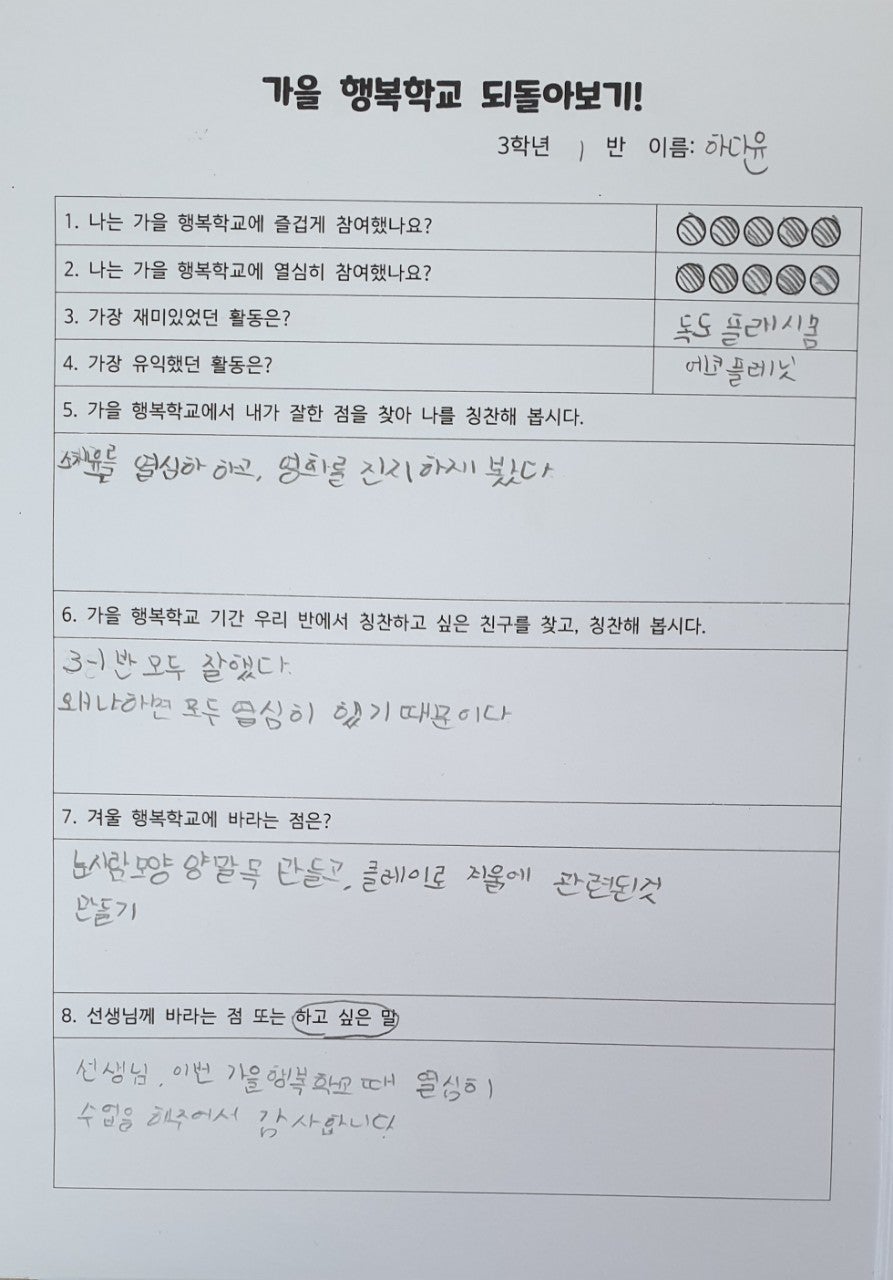 가을 행복학교 되돌아보기!
3학년 1 반 이름: 하다윤
1. 나는 가을 행복학교에 즐겁게 참여했나요?
2. 나는 가을 행복학교에 열심히 참여했나요?
3. 가장 재미있었던 활동은? 독도 플래시몹
4. 가장 유익했던 활동은? 에코플레닛
5. 가을 행복학교에서 내가 잘한 점을 찾아 나를 칭찬해 봅시다.
하고, 영화를 진지하게 봤다
6. 가을 행복학교 기간 우리 반에서 칭찬하고 싶은 친구를 찾고, 칭찬해 봅시다.
3-1반 모두 잘했다.
왜냐하면 모두 열심히 했기 때문이다
7. 겨울 행복학교에 바라는 점은?
눈사람모양 양말목 만들고, 클레이로 관련된것
만들기
8. 선생님께 바라는 점 또는 하고 싶은 말
선생님, 이번 가을행복학교 때 열심히
수업을 해주어서 감사합니다